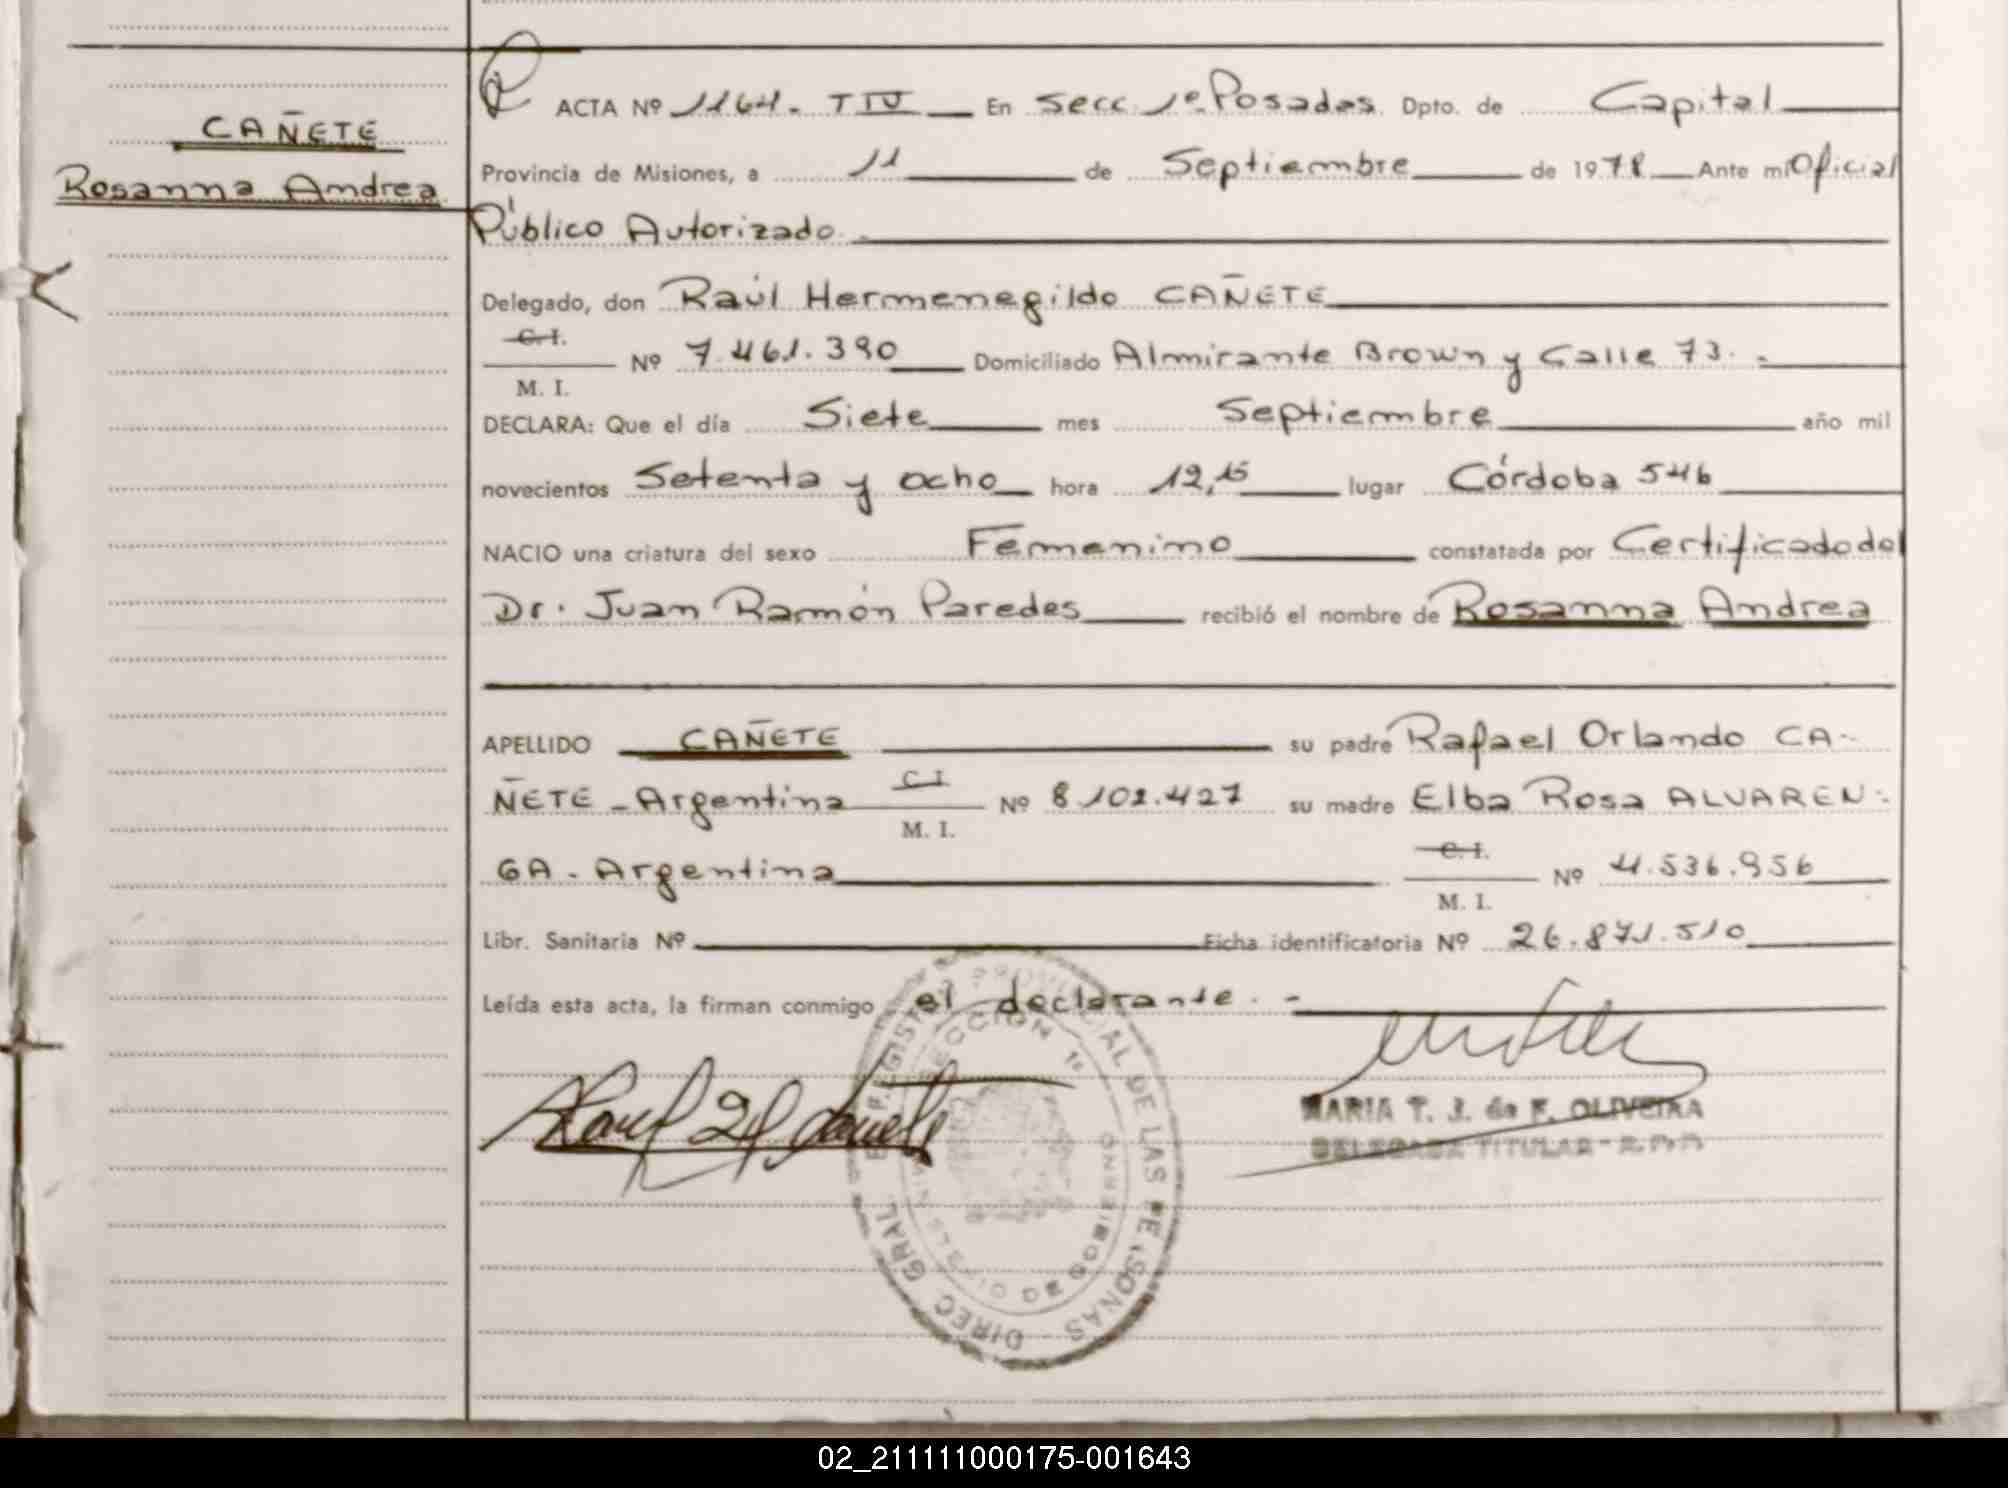 CAÑETE
Rosanna Andrea
ACTA Nº 1164. TIV En Secc. 1ª Posadas. Dpto. de Capital
Provincia de Misiones, a 11 de Septiembre de 1978 Ante mi Oficial
Público Autorizado.
Delegado, don Raúl Hermenegildo CAÑETE
C. I.
M. I. Nº 7.461.390 Domiciliado Almirante Brown y Calle 73. -
DECLARA: Que el día Siete mes Septiembre año mil
novecientos Setenta y ocho hora 12,15 lugar Córdoba 546
NACIO una criatura del sexo Femenino constatada por Certificado del
Dr. Juan Ramón Paredes recibió el nombre de Rosanna Andrea
APELLIDO CAÑETE su padre Rafael Orlando CA-
ÑETE - Argentina C. I. M. I. Nº 8.102.427 su madre Elba Rosa ALVAREN-
GA - Argentina C. I. M. I. Nº 4.536.956
Libr. Sanitaria Nº Ficha identificatoria Nº 26.871.510
Leída esta acta, la firman conmigo el declarante. -
MARIA T. J. de F. OLIVEIRA
DELEGADA TITULAR - R.P.P.
DIREC. GRAL. REGISTRO PROVINCIAL DE LAS PERSONAS
SECCION 1ª
MINISTERIO DE GOBIERNO
02_211111000175-001643